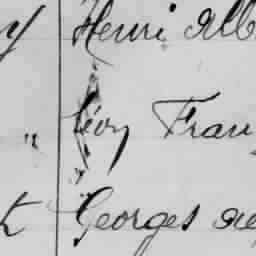 y Henri Alb
" Léon Fran
k Georges Aug